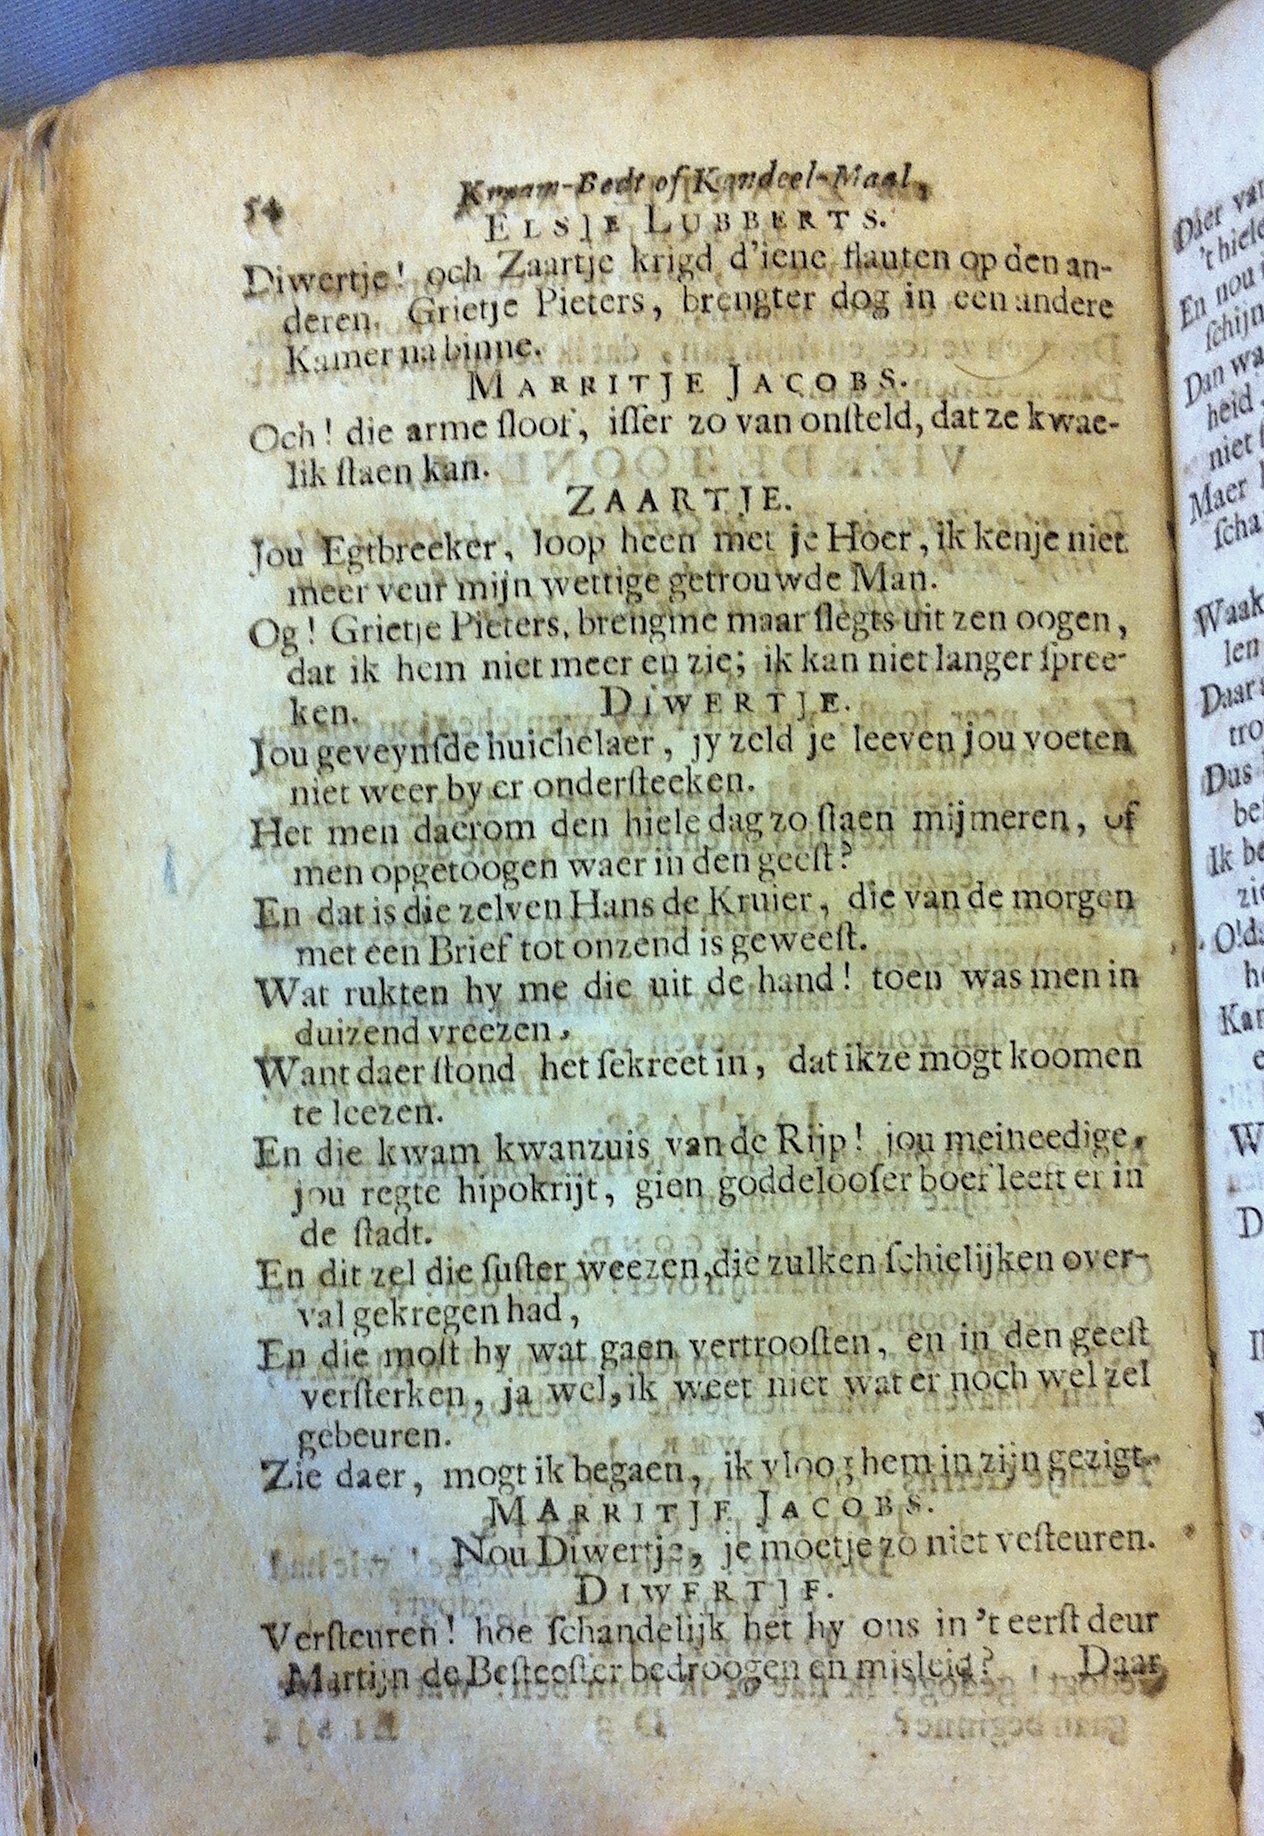 54 Kraam-Bedt of Kandeel-Maal,
ELSJE LUBBERTS.
Diwertje! och Zaartje krigd d'iene flauten op den an-
deren. Grietje Pieters, brengter dog in een andere
Kamer na binne.
MARRITJE JACOBS.
Och! die arme sloof, isser zo van onsteld, dat ze kwae-
lik staen kan.
ZAARTJE.
Jou Egtbreeker, loop heen met je Hoer, ik kenje niet
meer veur mijn wettige getrouwde Man.
Og! Grietje Pieters, brengme maar slegts uit zen oogen,
dat ik hem niet meer en zie; ik kan niet langer spree-
ken.
DIWERTJE.
Jou geveynsde huichelaer, jy zeld je leeven jou voeten
niet weer by er ondersteeken.
Het men daerom den hiele dag zo staen mijmeren, of
men opgetoogen waer in den geest?
En dat is die zelven Hans de Kruier, die van de morgen
met een Brief tot onzend is geweest.
Wat rukten hy me die uit de hand! toen was men in
duizend vreezen,
Want daer stond het sekreet in, dat ikze mogt koomen
te leezen.
En die kwam kwanzuis van de Rijp! jou meineedige,
jou regte hipokrijt, gien goddelooser boef leeft er in
de stadt.
En dit zel die suster weezen, die zulken schielijken over-
val gekregen had,
En die most hy wat gaen vertroosten, en in den geest
versterken, ja wel, ik weet niet wat er noch wel zel
gebeuren.
Zie daer, mogt ik begaen, ik vloog hem in zijn gezigt.
MARRITJE JACOBS.
Nou Diwertje, je moetje zo niet vesteuren.
DIWERTJE.
Versteuren! hoe schandelijk het hy ons in 't eerst deur
Martijn de Besteester bedroogen en misleid? Daar
Daer van
't hiele
En nou
schijn
Dan wa
heid
niet
Maer
scha
Waak
len
Daar
tro
Dus
be
Ik be
zie
O!da
he
Kan
e
W
D